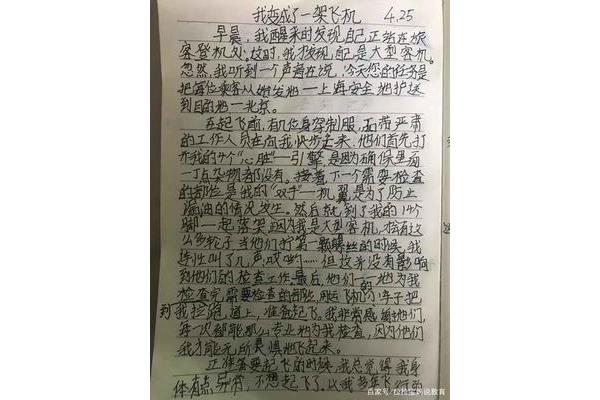 我变成了一架飞机 4.25
早晨,我醒来时发现自己正站在旅
客登机处。这时,我发现,自己是大型客机。
忽然,我听到一个声音在说,今天您的任务是
把每位乘客从始发地—上海安全地护送
到目的地—北京。
在起飞前,有几位身穿制服,面带严肃
的工作人员在向我快步走来,他们首先打
开我的4个“心脏”—引擎是因为确保里面
一丁点杂物都没有。接着下一个需要检查
的部位是我的“双手”—机翼是为了防止
漏油的情况发生。然后就到了我的14个
脚—起落架因为我是大型客机,才有这
么多轮子,当他们拧第一颗螺丝的时候,我
连忙叫了几声,哎哟……但这并没有影响
到他们的检查工作。最后,他们一一地为我
检查完需要检查的部位,用运飞机的车子把
我拉到跑道上,准备起飞。我非常感谢他们,
每一次都能那么专业地为我检查,因为他们
我才能无所畏惧地飞起来。
正准备要起飞的时候,我总觉得我身
体有点异常,不想起飞了,以我多年飞行的
百家号/拉拉宝妈说教育